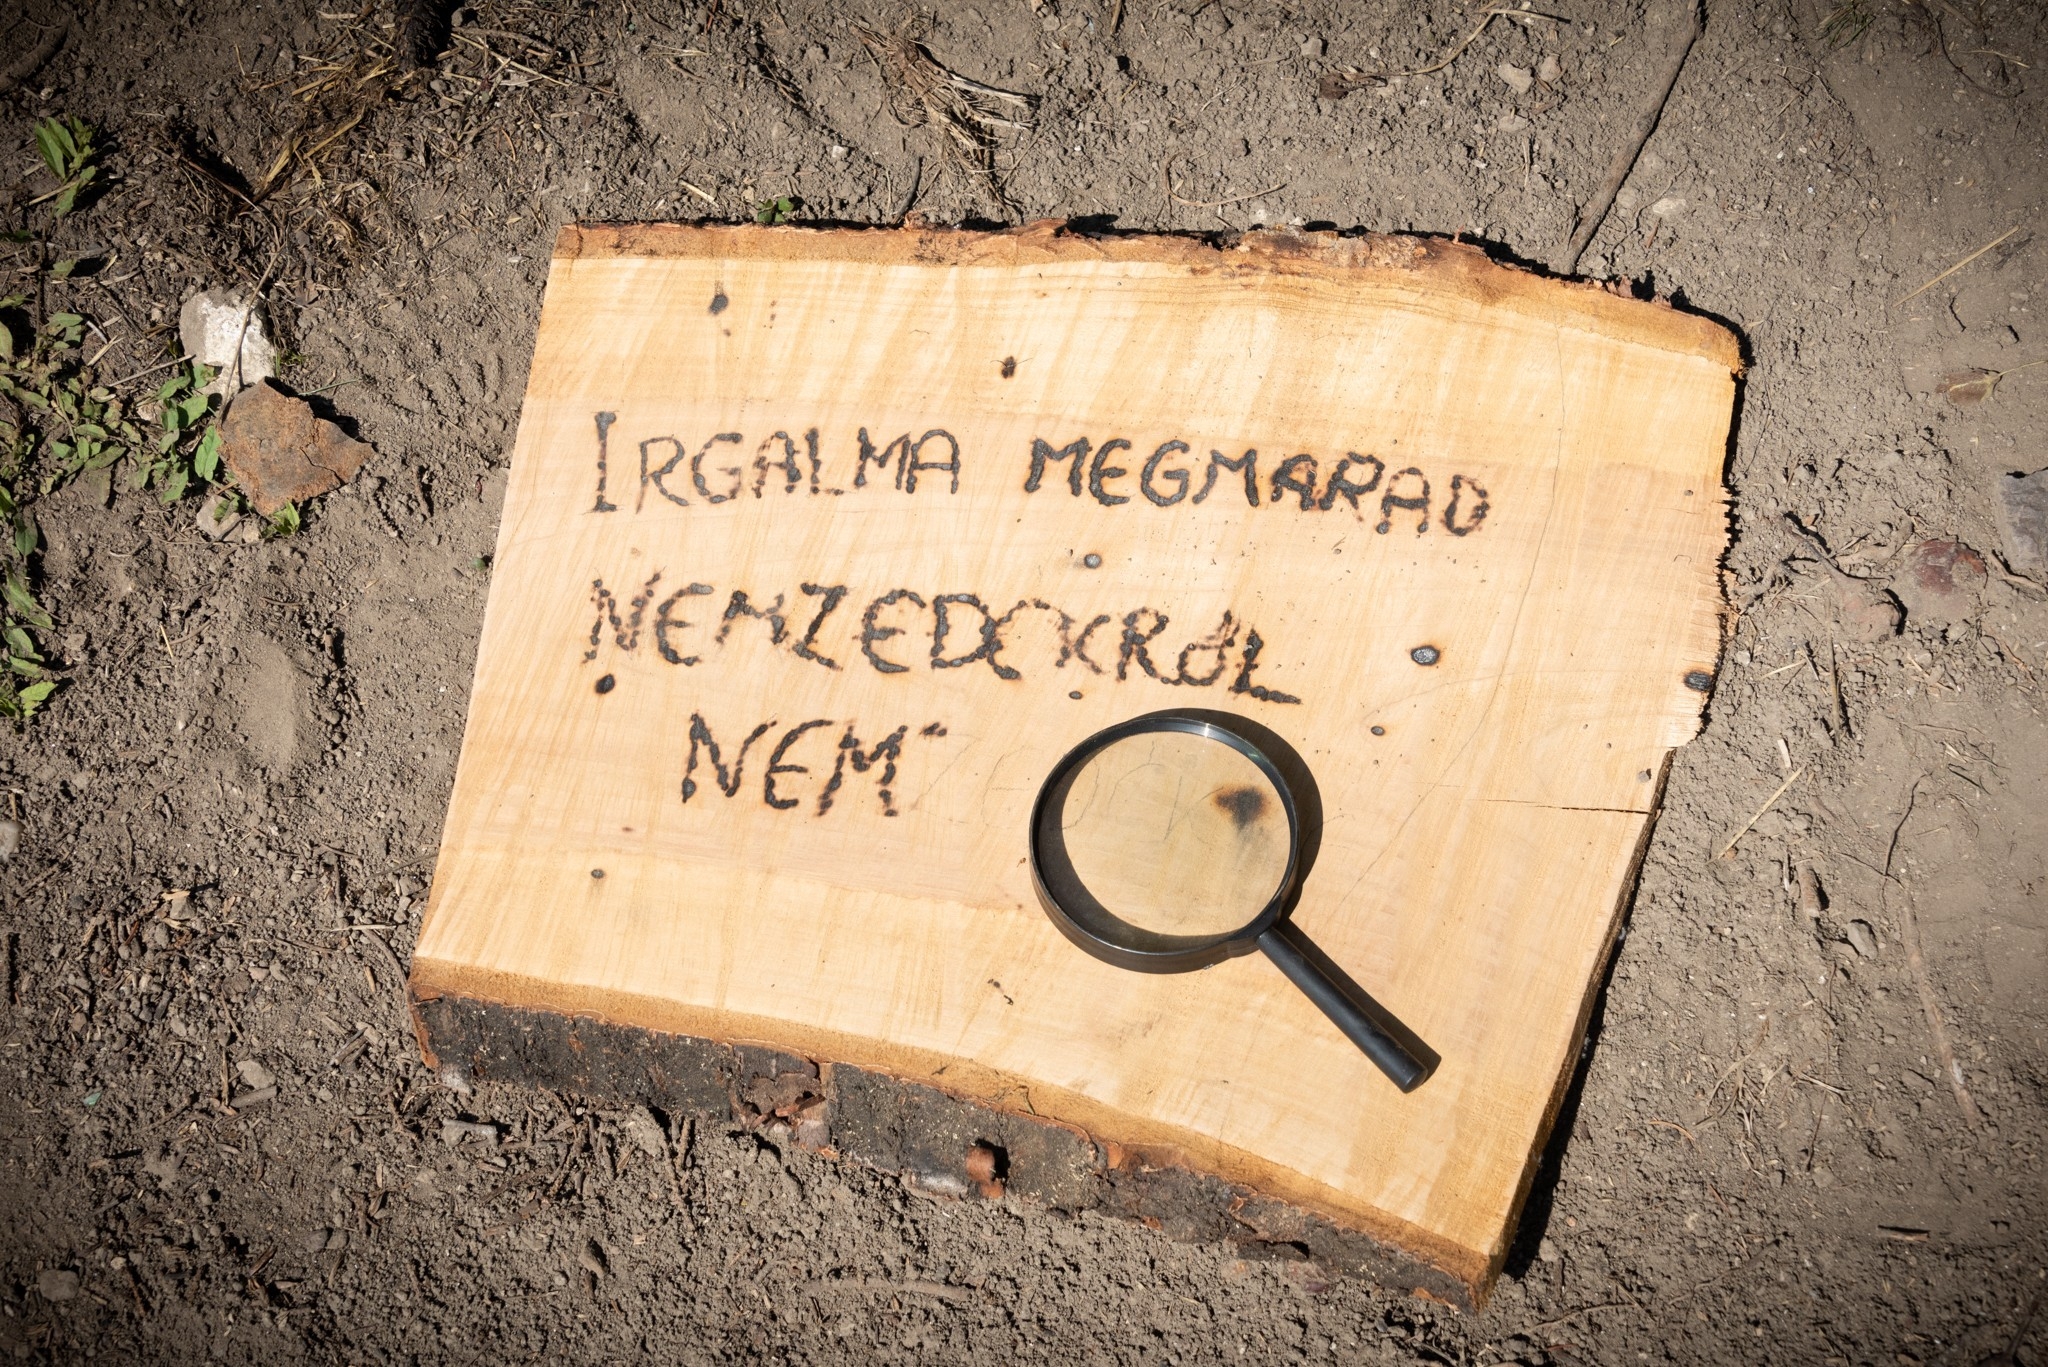 IRGALMA MEGMARAD
NEMZEDÉKRŐL
NEM